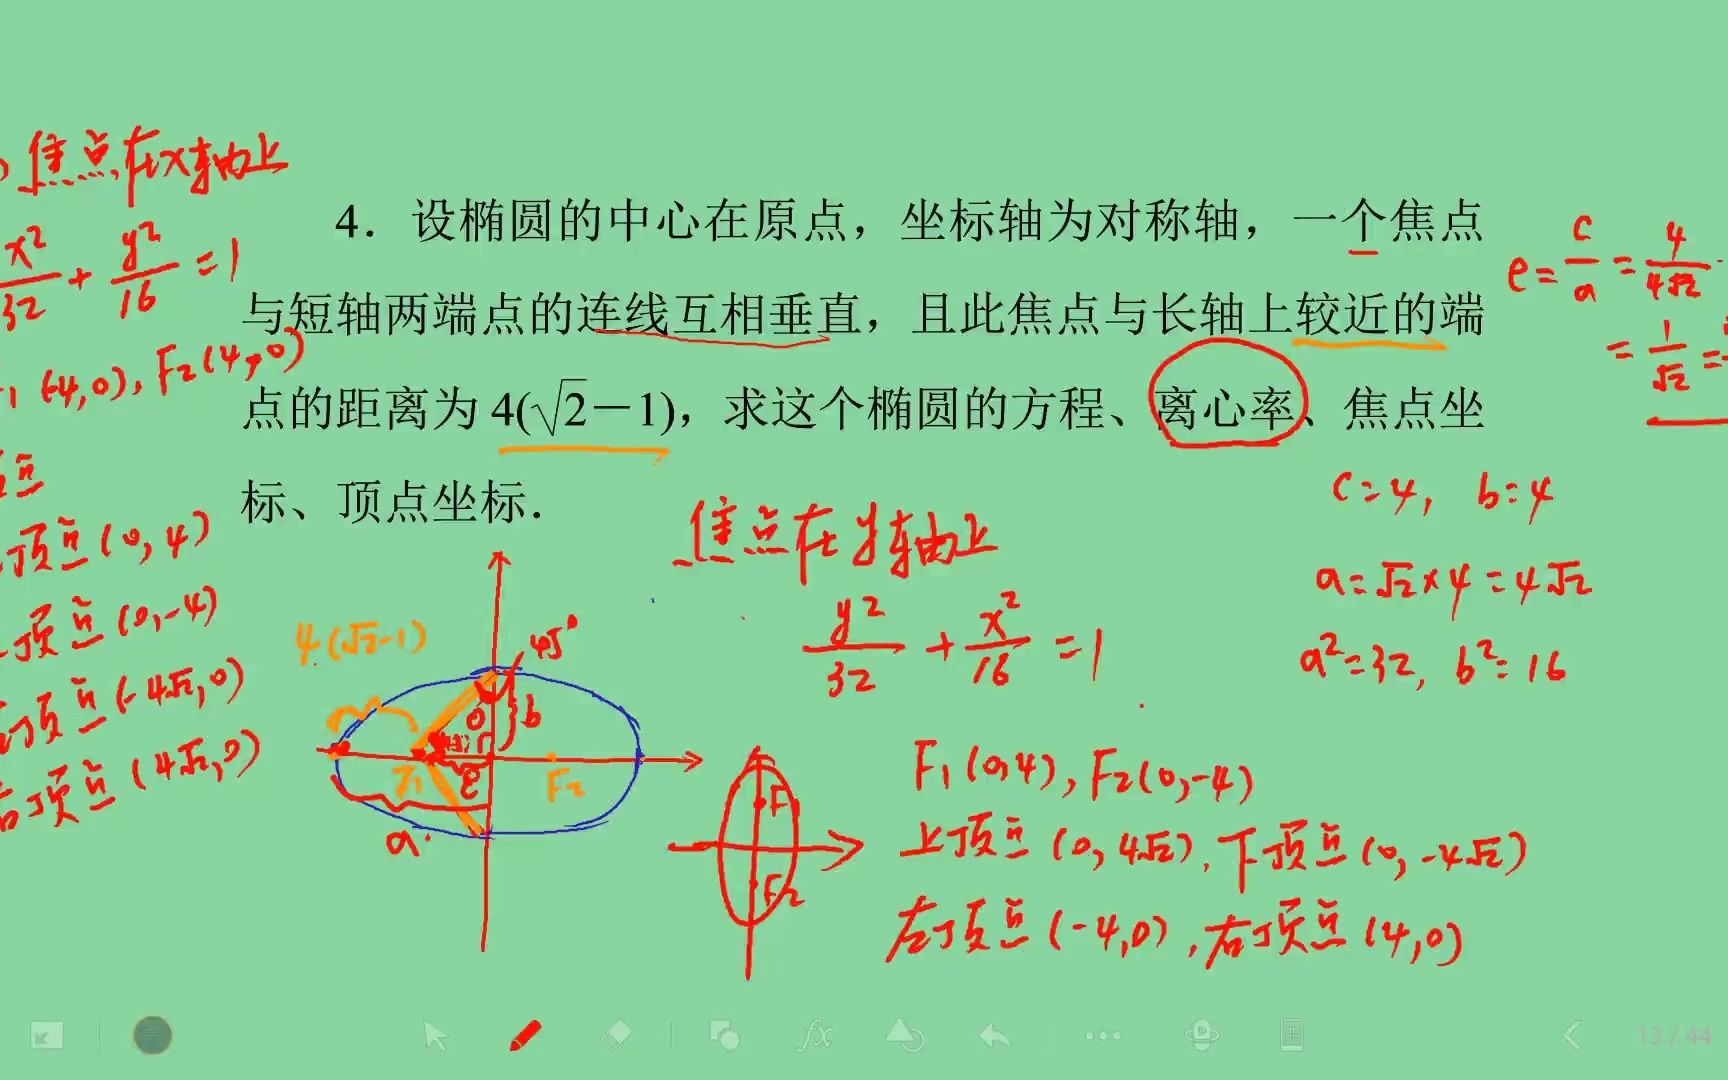 焦点在x轴上
x²/32 + y²/16 = 1
(-4,0), F₂(4,0)
顶点(0,4)
顶点(0,-4)
顶点(-4√2,0)
右顶点(4√2,0)
4．设椭圆的中心在原点，坐标轴为对称轴，一个焦点
与短轴两端点的连线互相垂直，且此焦点与长轴上较近的端
点的距离为 4(√2－1)，求这个椭圆的方程、离心率、焦点坐
标、顶点坐标．
e = c/a = 4/4√2
= 1/√2 =
c=4, b=4
a=√2×4=4√2
a²=32, b²=16
焦点在y轴上
y²/32 + x²/16 = 1
F₁(0,4), F₂(0,-4)
上顶点(0,4√2), 下顶点(0,-4√2)
左顶点(-4,0), 右顶点(4,0)
4(√2-1)
45°
b
F₁
c
F₂
a
F₁
F₂
fx
13 / 44